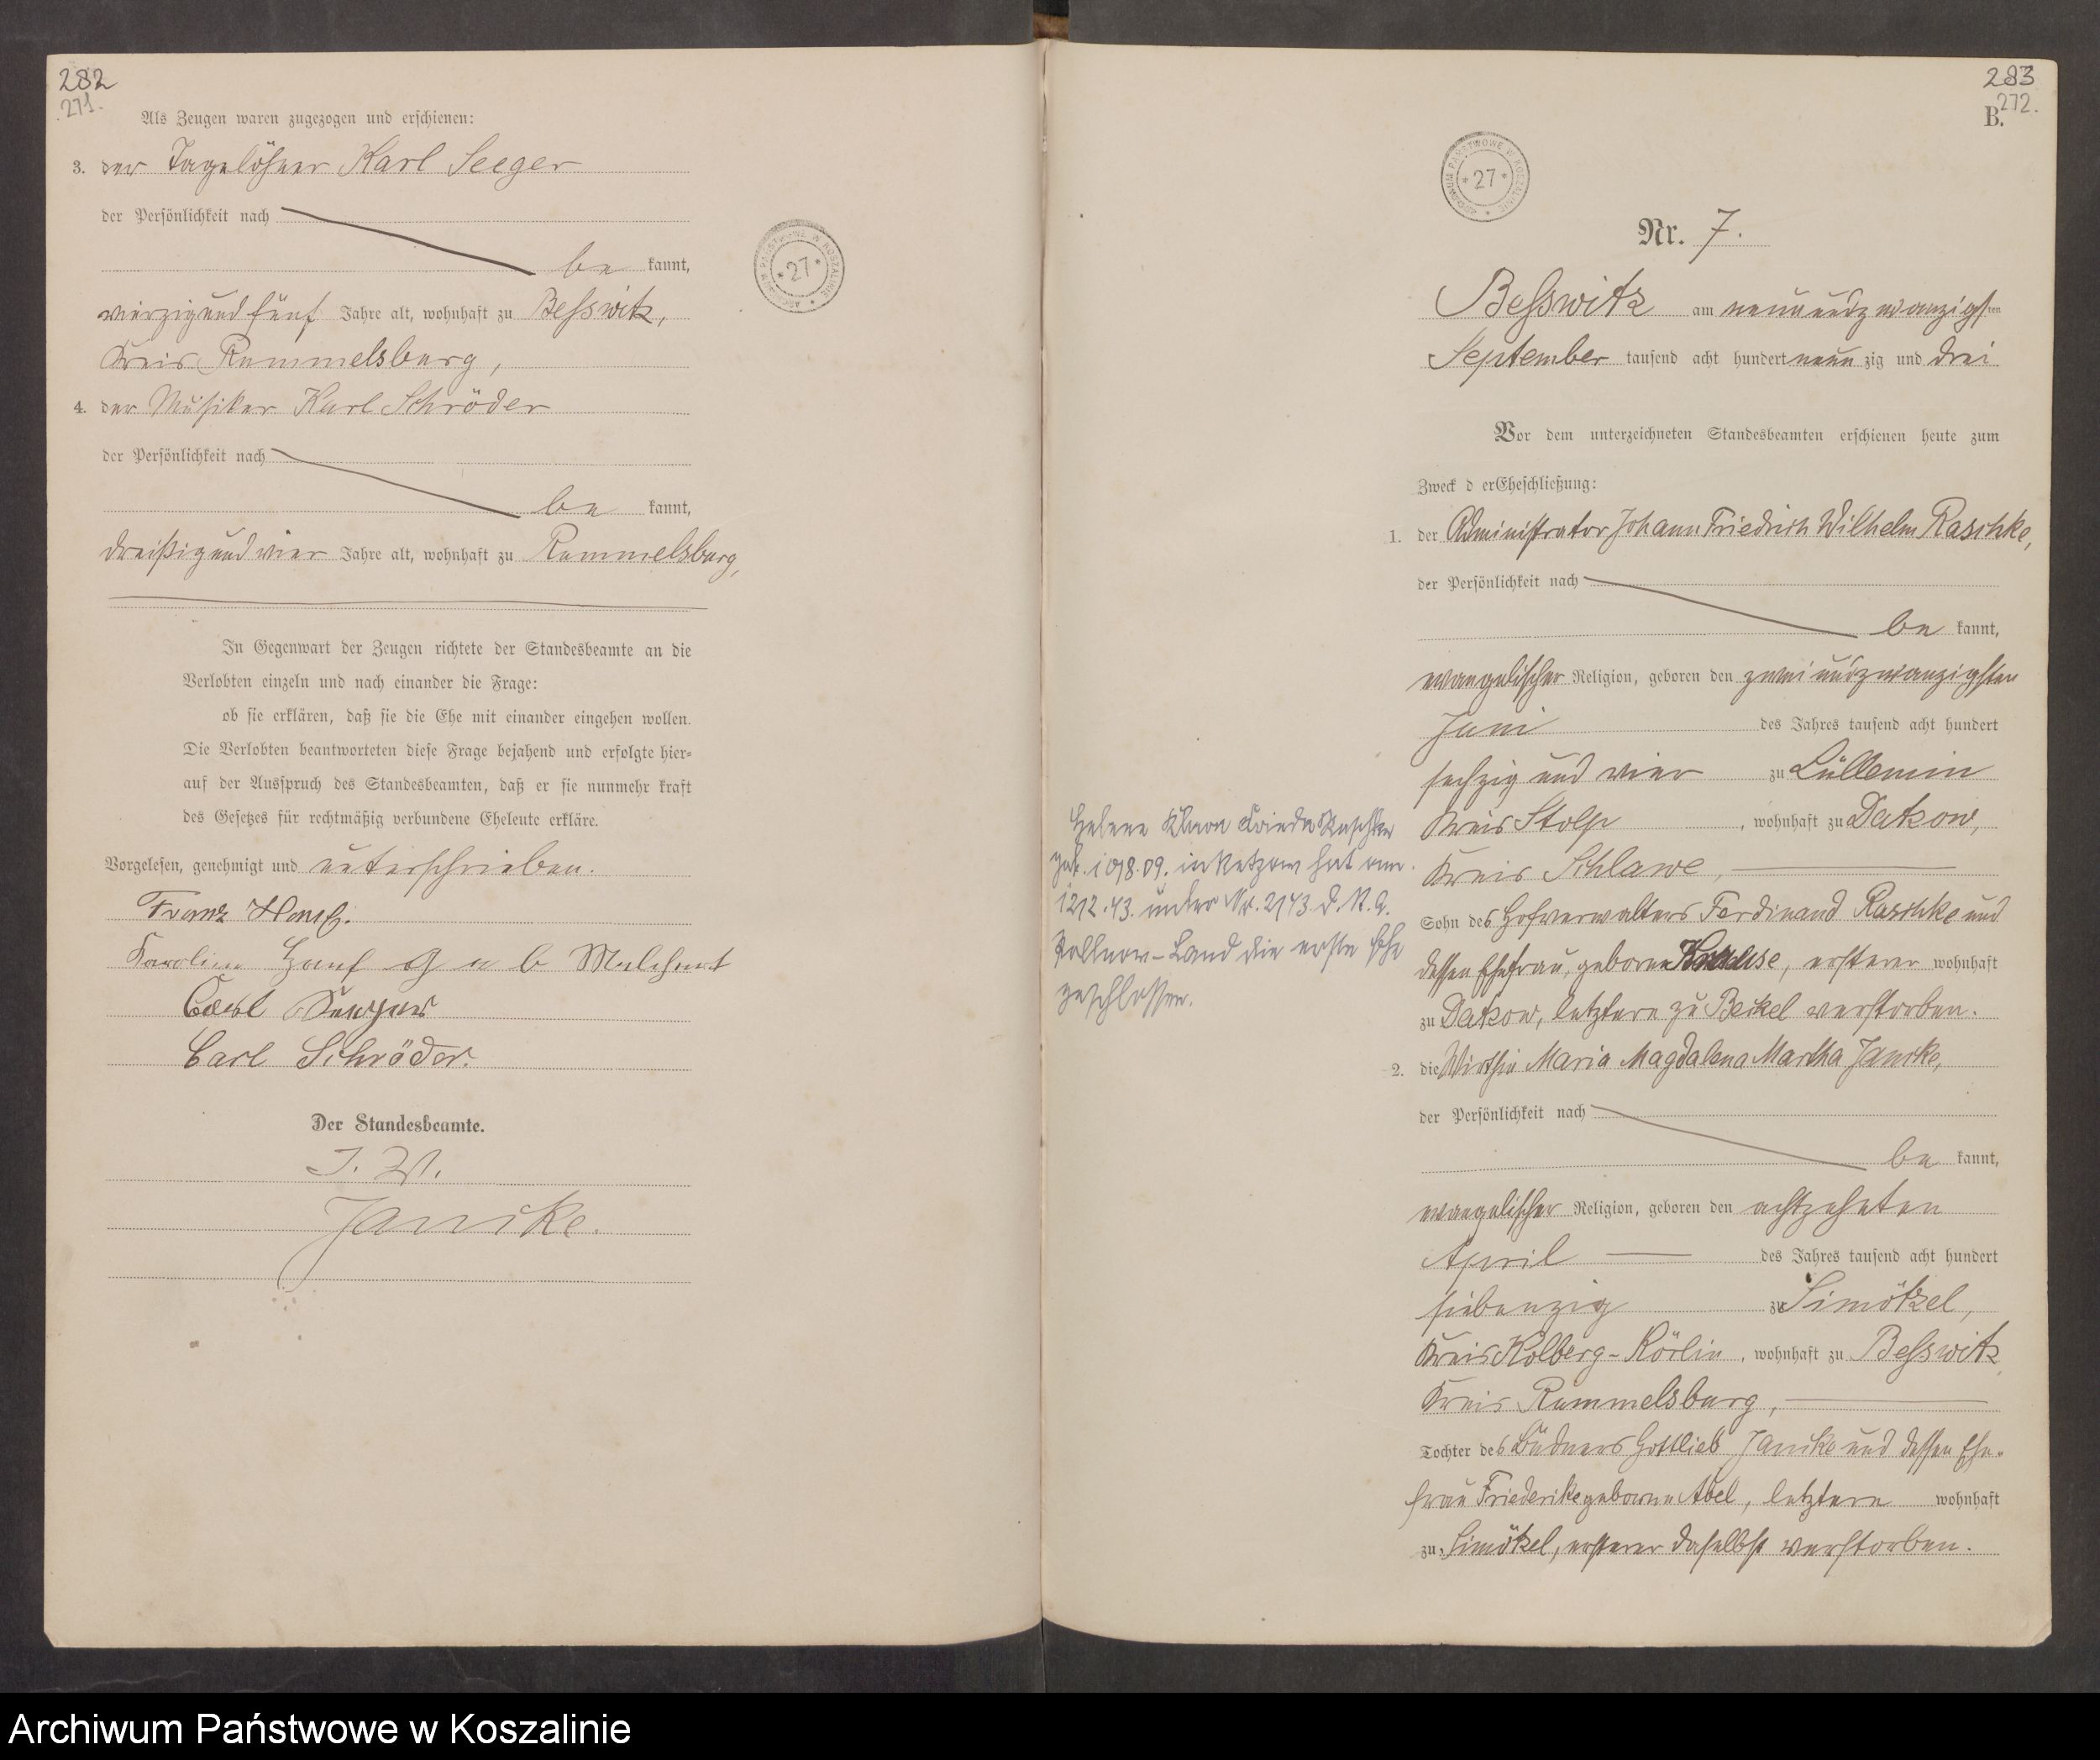 282
271.
Als Zeugen waren zugezogen und erschienen:
3. der Tagelöhner Karl Seeger
der Persönlichkeit nach
be kannt,
vierzig und fünf Jahre alt, wohnhaft zu Besswitz,
Kreis Rummelsburg,
4. der Musiker Karl Schröder
der Persönlichkeit nach
be kannt,
dreißig und vier Jahre alt, wohnhaft zu Rummelsburg,
In Gegenwart der Zeugen richtete der Standesbeamte an die
Verlobten einzeln und nach einander die Frage:
ob sie erklären, daß sie die Ehe mit einander eingehen wollen.
Die Verlobten beantworteten diese Frage bejahend und erfolgte hier-
auf der Ausspruch des Standesbeamten, daß er sie nunmehr kraft
des Gesetzes für rechtmäßig verbundene Eheleute erkläre.
Vorgelesen, genehmigt und unterschrieben.
Franz
Karoline geb
Carl
Carl Schröder.
Der Standesbeamte.
I. V.
Jancke.
ARCHIWUM PAŃSTWOWE W KOSZALINIE
* 27 *
283
272.
B.
ARCHIWUM PAŃSTWOWE W KOSZALINIE
* 27 *
Nr. 7.
Besswitz am neunundzwanzigsten
September tausend acht hundert neun zig und drei
Vor dem unterzeichneten Standesbeamten erschienen heute zum
Zweck d er Eheschließung:
1. der Administrator Johann Friedrich Wilhelm Raschke,
der Persönlichkeit nach
be kannt,
evangelischer Religion, geboren den zweiundzwanzigsten
Juni des Jahres tausend acht hundert
sechzig und vier zu Lüllemin
Kreis Stolp, wohnhaft zu Datzow,
Kreis Schlawe,
Sohn des Hofverwalters Ferdinand Raschke und
dessen Ehefrau, geborne Krause, ersterer wohnhaft
zu Datzow, letztere zu Beckel verstorben.
2. die Wirthin Maria Magdalena Martha Jancke,
der Persönlichkeit nach
be kannt,
evangelischer Religion, geboren den achtzehnten
April des Jahres tausend acht hundert
siebenzig zu Simötzel,
Kreis Kolberg-Körlin, wohnhaft zu Besswitz
Kreis Rummelsburg,
Tochter des Büdners Gottlieb Jancke und dessen Ehe-
frau Friederike geborne Abel, letztere wohnhaft
zu Simötzel, ersterer daselbst verstorben.
Helene Frieda Raschke
geb. 10.8.09. in hat am
12.12.43. unter Nr. 2143
Land die erste Ehe
geschlossen.
Archiwum Państwowe w Koszalinie